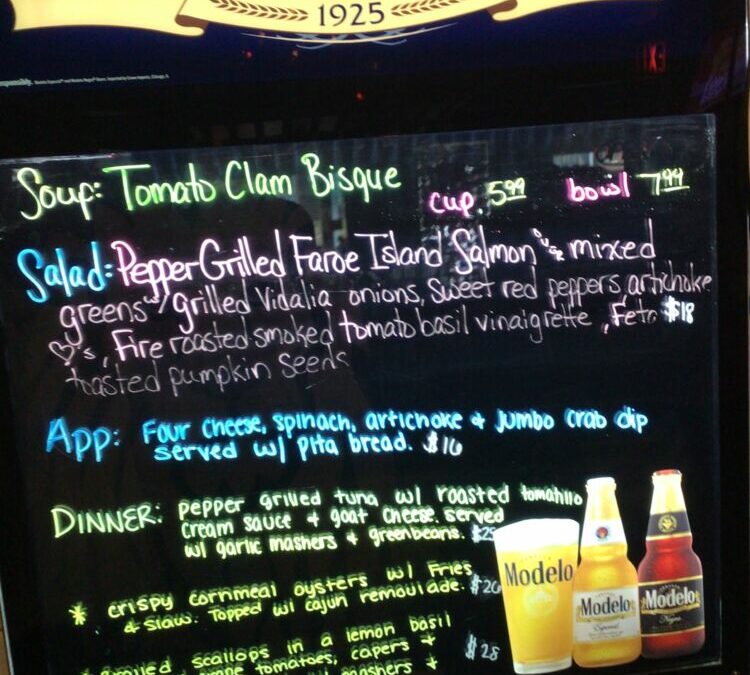 1925
Soup: Tomato Clam Bisque cup 5.99 bowl 7.99
Salad: Pepper Grilled Faroe Island Salmon over mixed
greens w/ grilled Vidalia onions, sweet red peppers artichoke
♡'s, Fire roasted smoked tomato basil vinaigrette, Feta $18
toasted pumpkin seeds
App: Four cheese, spinach, artichoke & Jumbo crab dip
served w/ pita bread. $16
DINNER: pepper grilled tuna w/ roasted tomatillo
cream sauce & goat cheese. served
w/ garlic mashers & greenbeans.
* crispy cornmeal oysters w/ Fries
& slaw. Topped w/ cajun remoulade. $26
scallops in a lemon basil
tomatoes, capers & $28
mashers &
Modelo
Modelo
Especial
Modelo
Negra